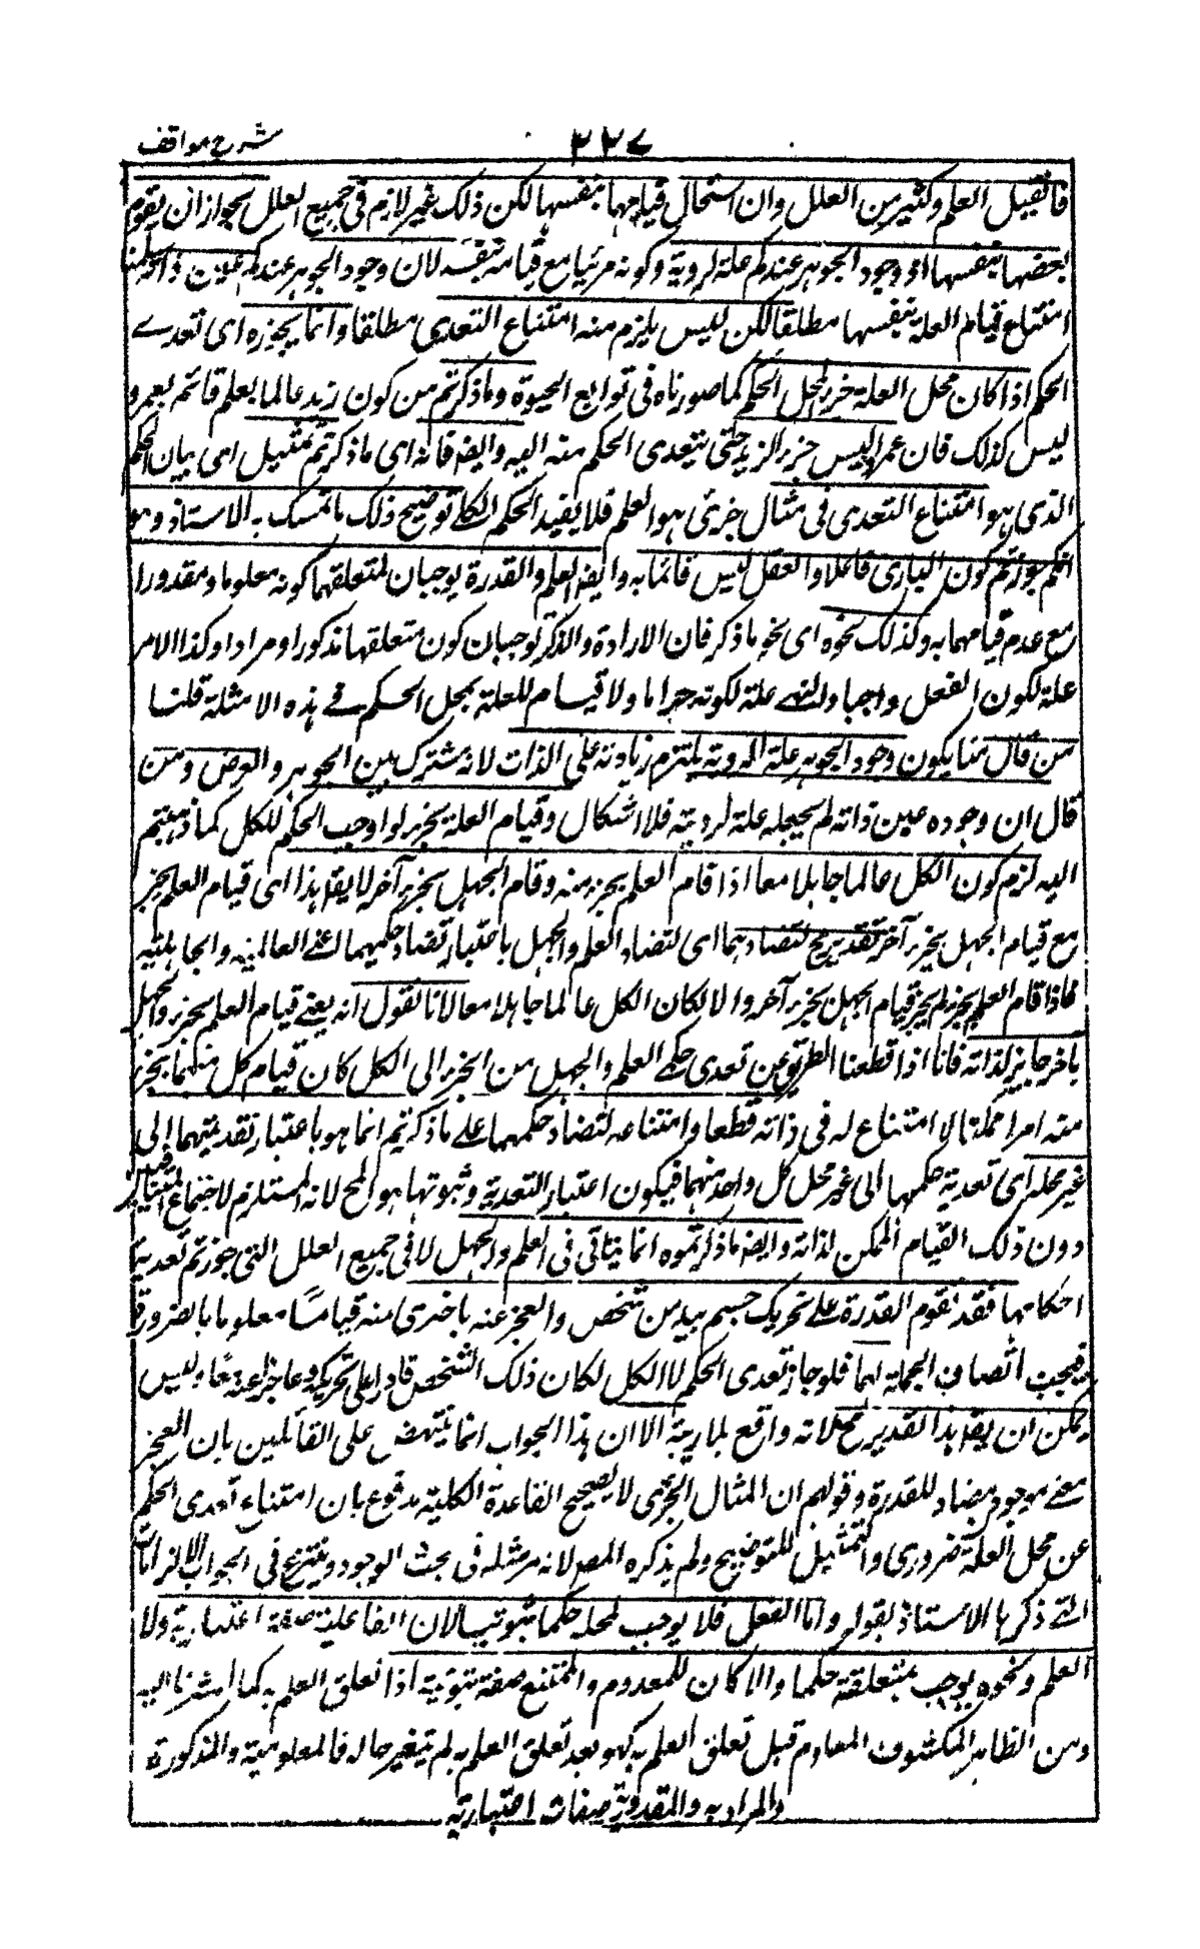 شرح مواقف
٢٢٧
فان قيل العلم وكثير من العلل وان استحال قيامها بنفسها لكن ذلك غير لازم فى جميع العلل لجواز ان يقوم
بعضها بنفسها اذ وجود الجوهر عندكم علة لرؤية وكونه مرئيا مع قيامه بنفسه لان وجود الجوهر عندكم عين ذاته سلمنا
امتناع قيام العلة بنفسها مطلقا لكن ليس يلزم منه امتناع التعدى مطلقا وانما يجوزه اى تعدے
الحكم اذا كان محل العلة جزء لمحل الحكم كما صورناه فى توابع الحيوة وما ذكرتم من كون زيد عالما بعلم قائم بعمرو
ليس كذلك فان عمرا ليس جزء الزيد حتى يتعدى الحكم منه اليه وايضا فانه اى ما ذكرتم تمثيل اى بيان الحكم
الذى هو امتناع التعدى فى مثال جزئى هو العلم فلا يفيد الحكم الكلے توضيح ذلك ما تمسك به الاستاذ وهو
انكم جوزتم كون البارى فاعلا والفعل ليس قائما به وايضا العلم والقدرة يوجبان لمتعلقهما كونه معلوما ومقدورا
مع عدم قيامهما به وكذلك نحوه اى نحو ما ذكر فان الارادة والذكر يوجبان كون متعلقها مذكورا ومرادا وكذا الامر
علة لكون الفعل واجبا والنهے علة لكونه حراما ولا قيام للعلة بمحل الحكم فے هذه الامثلة قلنا
من قال منا بكون وجود الجوهر علة الرؤية يلتزم زيادته على الذات لانه مشترك بين الجوهر والعرض ومن
قال ان وجوده عين ذاته لم يجعله علة لرؤيته فلا اشكال وقيام العلة بجزء لو اوجب الحكم للكل كما ذهبتم
اليه لزم كون الكل عالما جاهلا معا اذا قام العلم بجزء منه وقام الجهل بجزء آخر لا يقال هذا اى قيام العلم بجزء
مع قيام الجهل بجزء آخر تقدير مح لتضادهما اى لتضاد العلم والجهل باعتبار تضاد حكميهما اعنے العالمية والجاهلية
فاذا قام العلم بجزء لم يجز قيام الجهل بجزء آخر والا لكان الكل عالما جاهلا معا لانا نقول انه يعنے قيام العلم بجزء والجهل
بآخر جايز لذاته فانا اذا قطعنا الطريق عن تعدى حكمے العلم والجهل من الجزء الى الكل كان قيام كل منهما بجزء
منه امرا ممكنا لا امتناع له فى ذاته قطعا وامتناعه لتضاد حكمهما علے ما ذكرتم انما هو باعتبار تعديتهما الى
غير محله اى تعدية حكمهما الى غير محل كل واحد منهما فيكون اعتبار التعدية وثبوتها هو المح لانه المستلزم لاجتماع المتنافيين
دون ذلك القيام الممكن لذاته وايضا ما ذكرتموه انما يتاتى فى العلم والجهل لا فى جميع العلل التى جوزتم تعدية
احكامها فقد تقوم القدرة علے تحريك جسم بيد من شخص والعجز عنه باخرى منه قياما معلوما بالضرورة
فيجب اتصاف الجملة بهما فلو جاز تعدى الحكم الى الكل لكان ذلك الشخص قادرا على تحريكه وعاجزا عنه معا وليس
يمكن ان يقال هذا تقدير مح لانه واقع بلا ريبة الا ان هذا الجواب انما ينتهض على القائلين بان العجز
معنے موجود مضاد للقدرة وقولهم ان المثال الجزئى لا يصحح القاعدة الكلية مدفوع بان امتناع تعدى الحكم
عن محل العلة ضرورى والتمثيل للتوضيح ولم يذكره المصـ لانه مر مثله فى بحث الوجود وشرع فى الجواب الالزامات
التے ذكرها الاستاذ بقوله واما الفعل فلا يوجب لمحله حكما ثبوتيا لان الفاعلية صفة اعتبارية ولا
العلم ونحوه يوجب لمتعلقه حكما والا كان للمعدوم والممتنع صفة ثبوتية اذا تعلق العلم به كما اشرنا اليه
ومن الظاهر المكشوف المعلوم قبل تعلق العلم به كهو بعد تعلق العلم به لم يتغير حاله فالمعلومية والمذكورة
والمرادية والمقدورية صفات اعتبارية